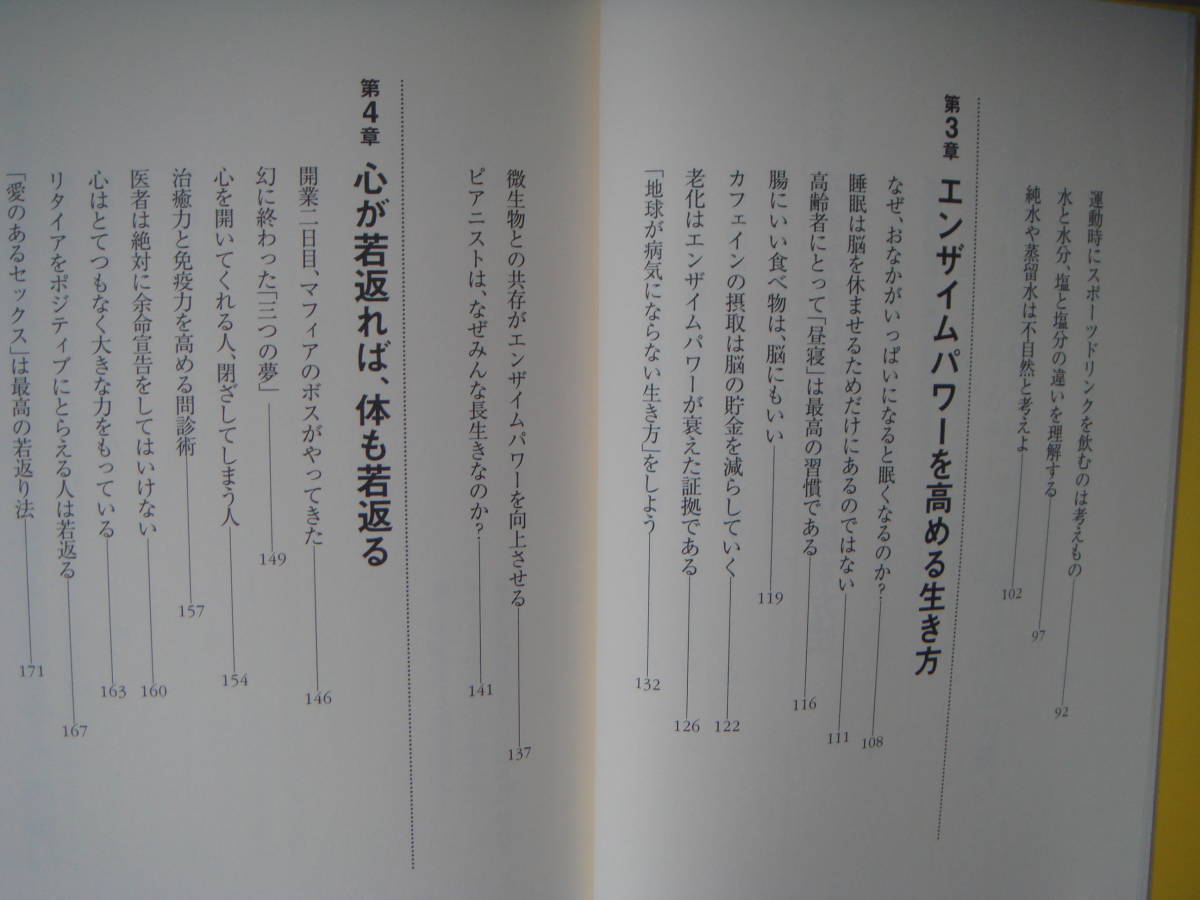 運動時にスポーツドリンクを飲むのは考えもの 92
水と水分、塩と塩分の違いを理解する 97
純水や蒸留水は不自然と考えよ 102
第3章 エンザイムパワーを高める生き方
なぜ、おなかがいっぱいになると眠くなるのか? 108
睡眠は脳を休ませるためだけにあるのではない 111
高齢者にとって「昼寝」は最高の習慣である 116
腸にいい食べ物は、脳にもいい 119
カフェインの摂取は脳の貯金を減らしていく 122
老化はエンザイムパワーが衰えた証拠である 126
「地球が病気にならない生き方」をしよう 132
微生物との共存がエンザイムパワーを向上させる 137
ピアニストは、なぜみんな長生きなのか? 141
第4章 心が若返れば、体も若返る
開業二日目、マフィアのボスがやってきた 146
幻に終わった「三つの夢」 149
心を開いてくれる人、閉ざしてしまう人 154
治癒力と免疫力を高める問診術 157
医者は絶対に余命宣告をしてはいけない 160
心はとてつもなく大きな力をもっている 163
リタイアをポジティブにとらえる人は若返る 167
「愛のあるセックス」は最高の若返り法 171